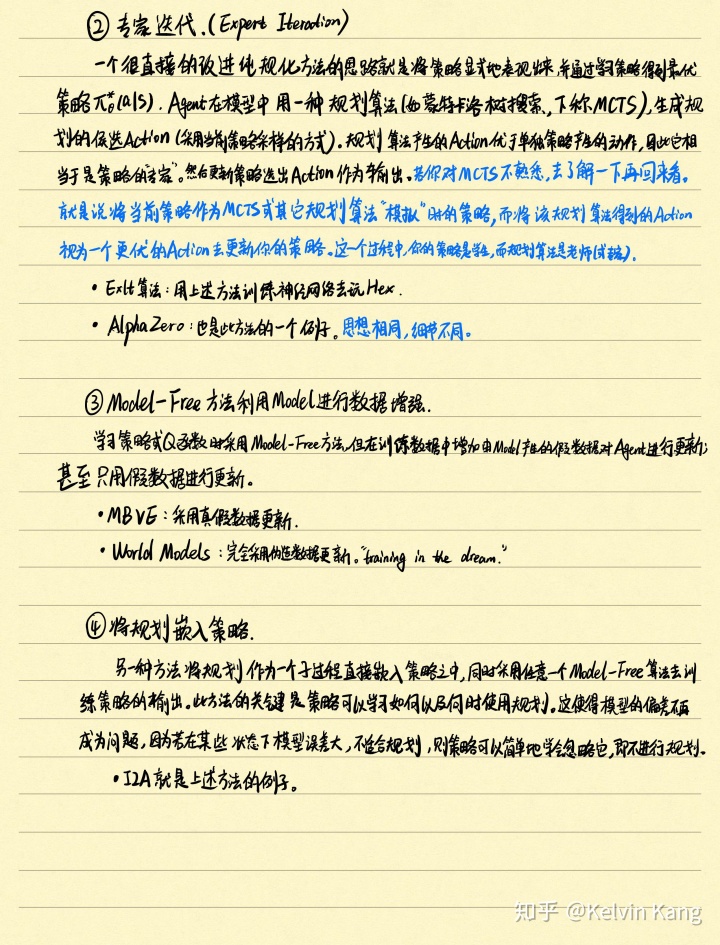 ② 专家迭代.(Expert Iteration)
一个很直接的改进纯规化方法的思路就是将策略显式地表现出来,并通过学习策略得到最优
策略π*θ(a|s). Agent在模型中用一种规划算法(如蒙特卡洛树搜索,下称MCTS),生成规
划的候选Action(采用当前策略采样的方式).规划算法产生的Action优于单独策略产生的动作,因此它相
当于是策略的"专家"。然后更新策略选出Action作为输出.若你对MCTS不熟悉,去了解一下再回来看。
就是说将当前策略作为MCTS或其它规划算法"模拟"时的策略,而将该规划算法得到的Action
视为一个更优的Action去更新你的策略。这个过程中,你的策略是学生,而规划算法是老师(或专家).
• ExIt算法:用上述方法训练神经网络去玩Hex.
• AlphaZero:也是此方法的一个例子。思想相同,细节不同。
③ Model-Free方法利用Model进行数据增强.
学习策略或Q函数时采用Model-Free方法,但在训练数据中增加由Model产生的假数据对Agent进行更新;
甚至只用假数据进行更新。
• MBVE:采用真假数据更新.
• World Models:完全采用伪造数据更新。"training in the dream."
④ 将规划嵌入策略.
另一种方法将规划作为一个子过程直接嵌入策略之中,同时采用任意一个Model-Free算法去训
练策略的输出。此方法的关键是策略可以学习如何以及何时使用规划。这使得模型的偏差不再
成为问题,因为若在某些状态下模型误差大,不适合规划,则策略可以简单地学会忽略它,即不进行规划.
• I2A就是上述方法的例子。
知乎 @Kelvin Kang